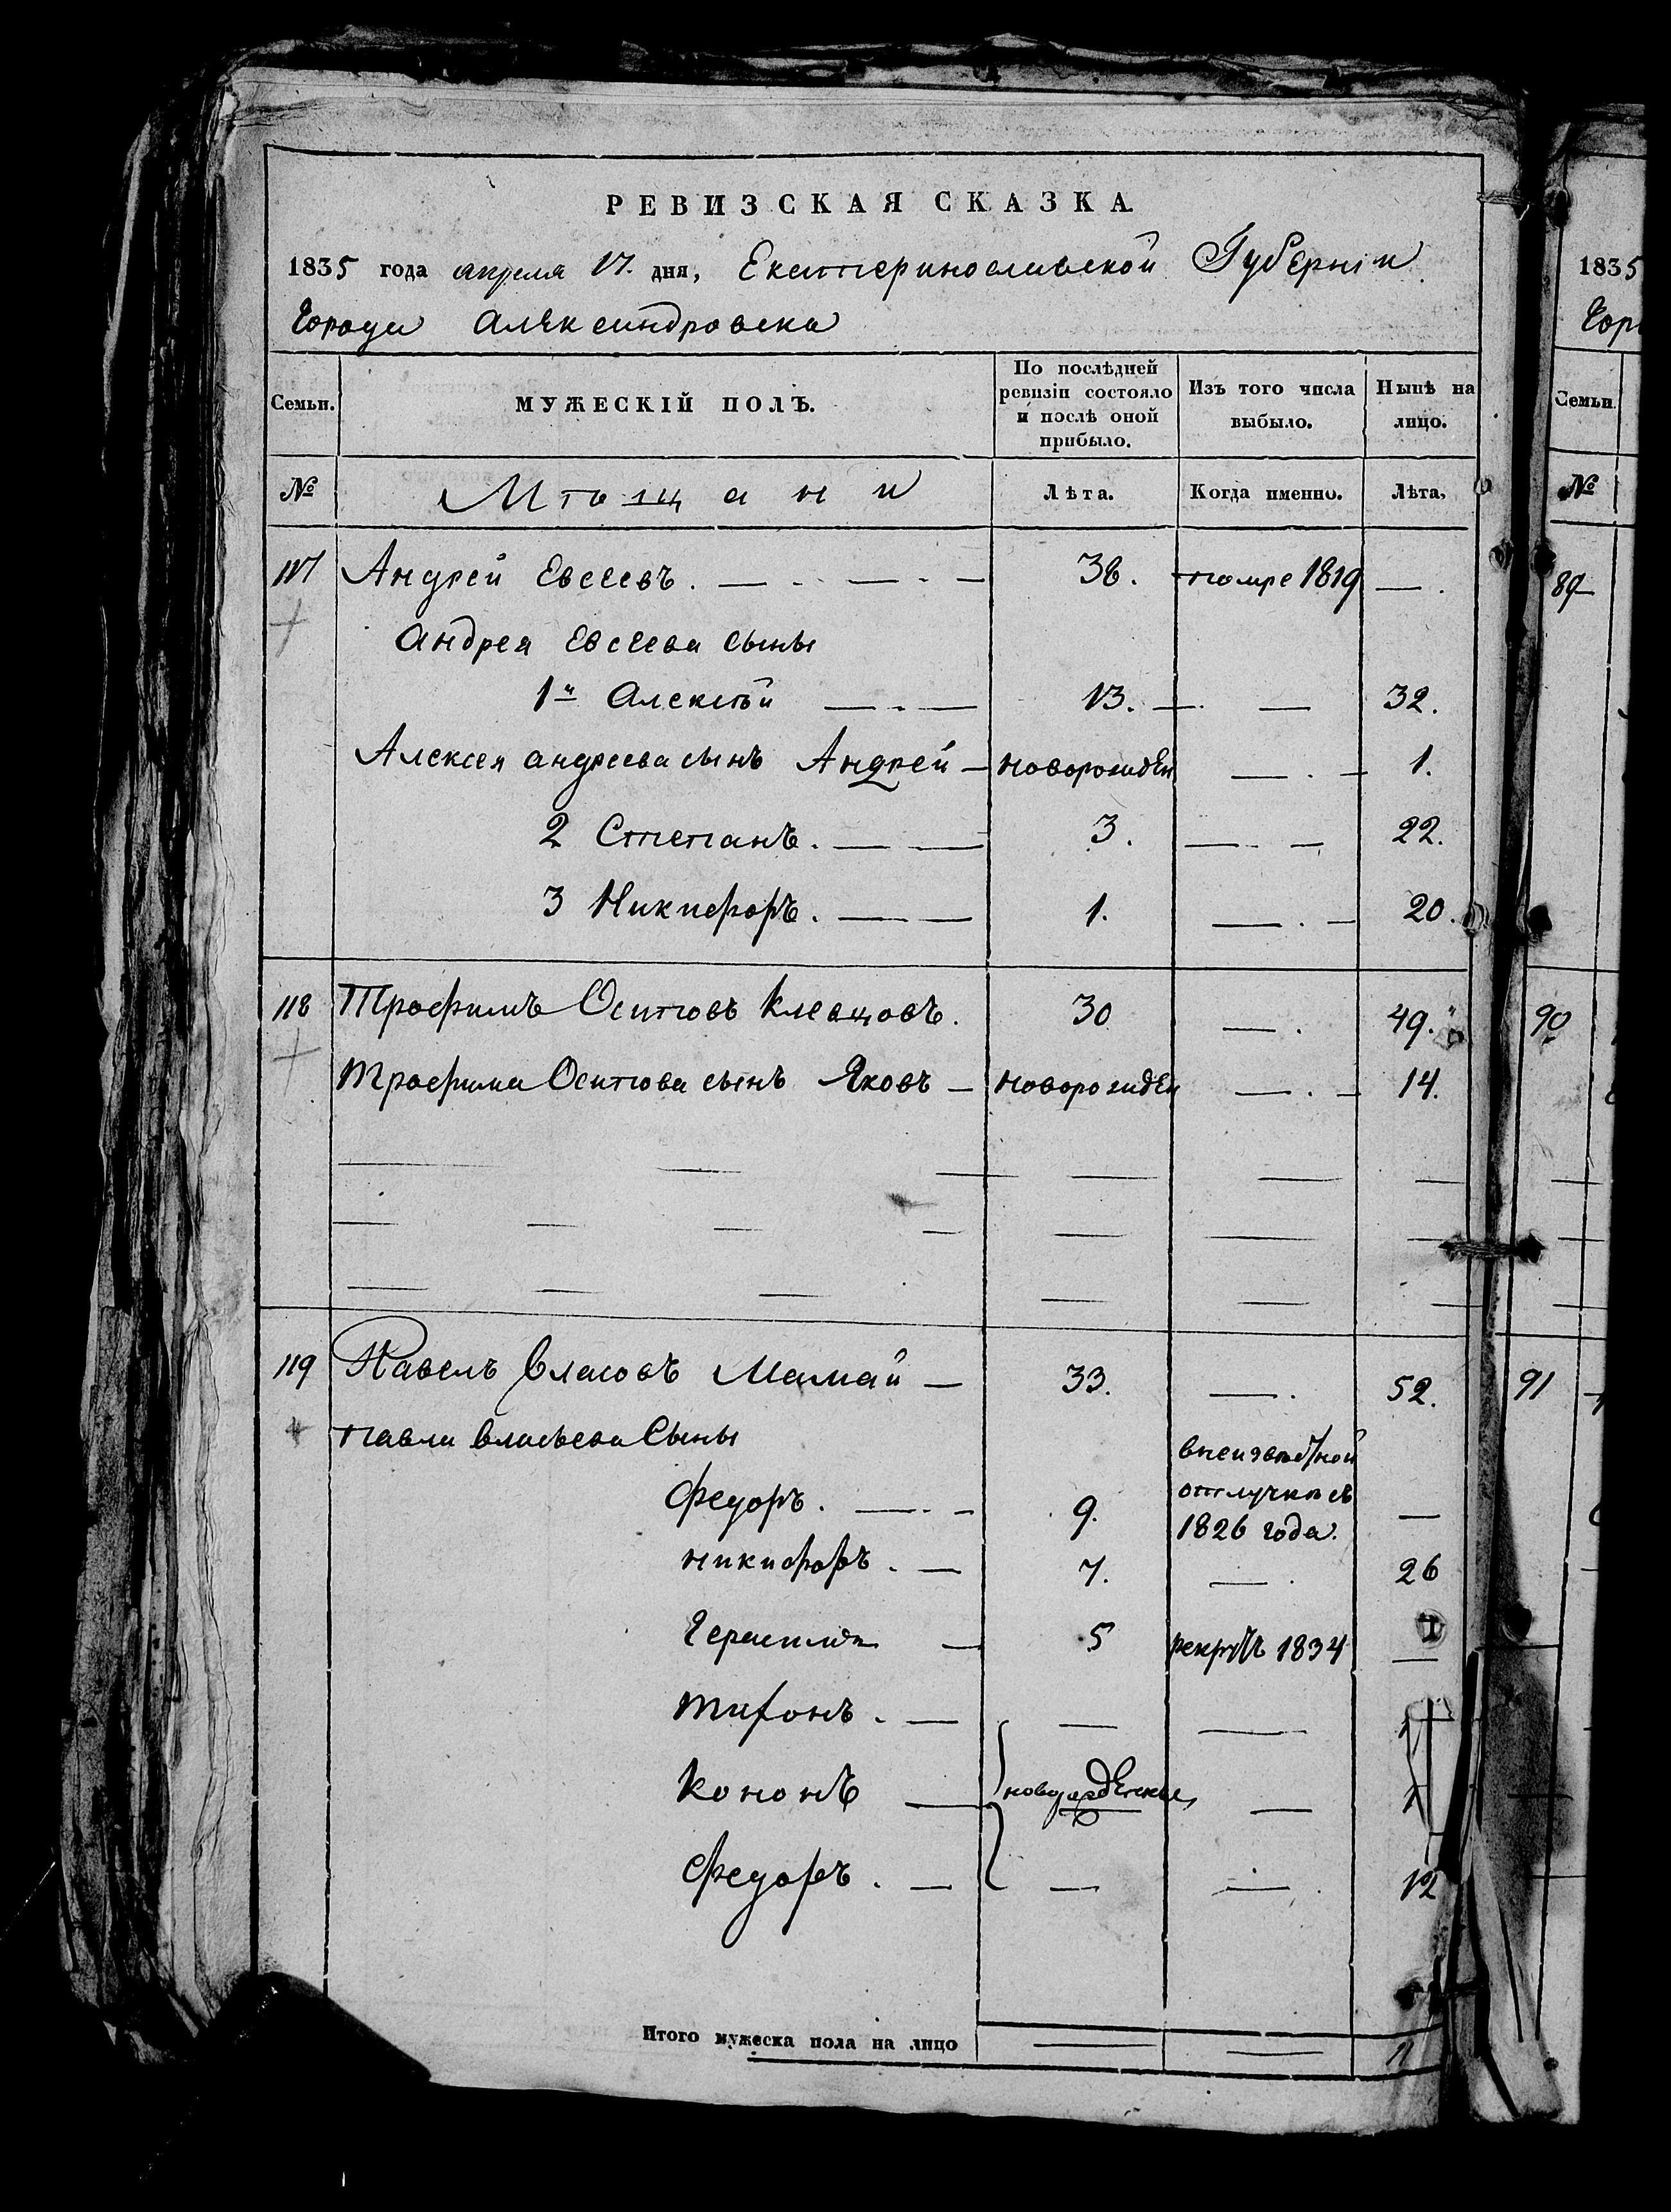 РЕВИЗСКАЯ СКАЗКА.
1835 года апреля 17. дня, Екатеринославской Губернiи
Города Александровска
Семьи. МУЖЕСКIЙ ПОЛЪ. По послѣдней ревизiи состояло и послѣ оной прибыло. Изъ того числа выбыло. Нынѣ на лицо.
№ Мѣщани Лѣта. Когда именно. Лѣта.
117 Андрей Евсеевъ. — 38. помре 1819 —
Андрея Евсеева сыны
1й Алексѣй — 13. — 32.
Алексея андреева сынъ Андрей — новорожден — 1.
2 Степанъ. — 3. — 22.
3 Никифоръ. — 1. — 20.
118 Трофимъ Осиповъ Клевцовъ. 30 — 49.
Трофима Осипова сынъ Яковъ — новорожден — 14.
119 Павелъ Власовъ Мамай — 33. — 52.
Павла Власьева Сыны
Федоръ. — 9. внеизвѣстной отлучке съ 1826 года. —
Никифоръ. — 7. — 26
Герасимъ — 5 рекрутъ 1834 —
Тихонъ. — — —
Кононъ — новорожденные —
Федоръ. — — — 12
Итого мужеска пола на лицо — — 11
1835
Гор
Семьи.
№
89
90
91